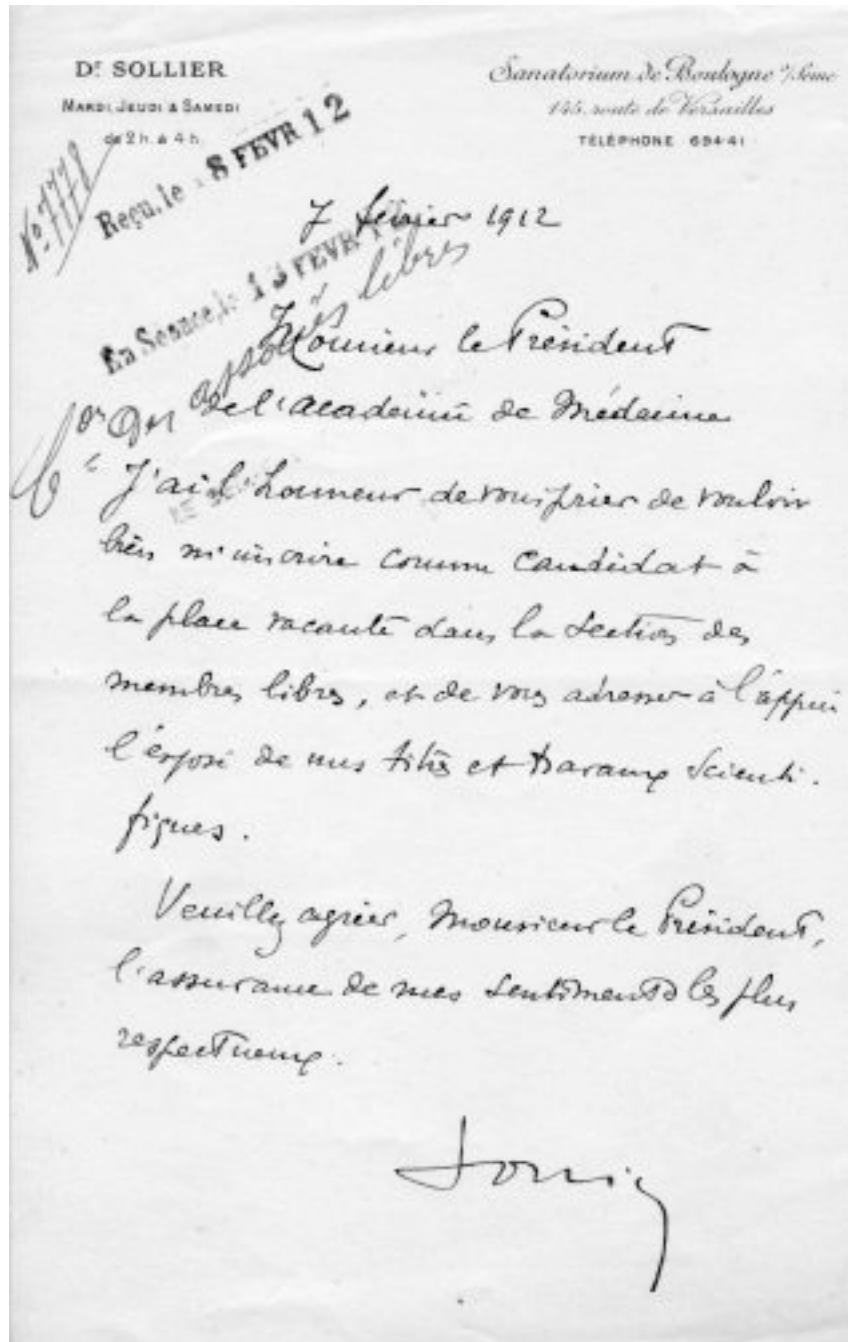 Dr SOLLIER
MARDI, JEUDI & SAMEDI
de 2 h. à 4 h.
Sanatorium de Boulogne s/Seine
145, route de Versailles
TÉLÉPHONE 694-41
No 7778
Reçu, le 8 FEVR 12
En Séance, le 13 FEVR
Con des associés libres
7 février 1912
Monsieur le Président
de l'académie de Médecine
J'ai l'honneur de vous prier de vouloir
bien m'inscrire comme candidat à
la place vacante dans la section des
membres libres, et de vous adresser à l'appui
l'exposé de mes titres et travaux scienti-
fiques.
Veuillez agréer, Monsieur le Président,
l'assurance de mes sentiments les plus
respectueux.
Sollier